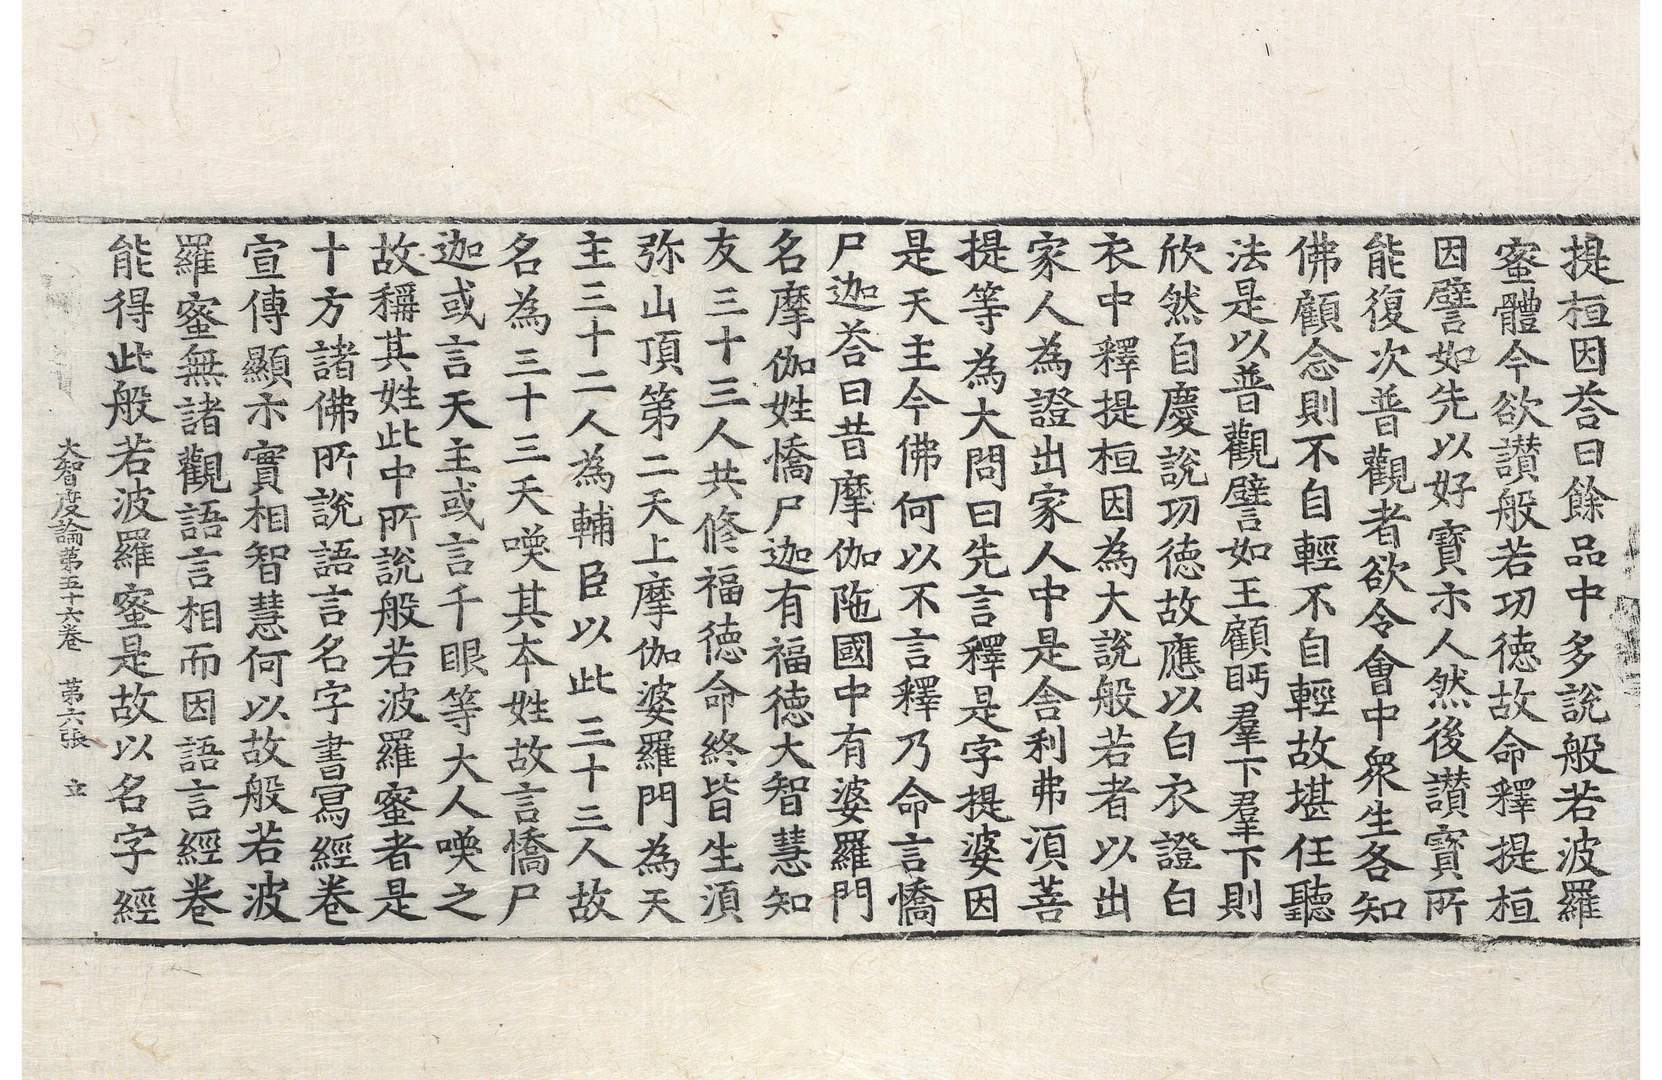 提桓因荅曰餘品中多說般若波羅
蜜體今欲讃般若功徳故命釋提桓
因譬如先以好寶示人然後讃寶所
能復次普觀者欲令會中衆生各知
佛顧念則不自輕不自輕故堪任聽
法是以普觀譬如王顧眄羣下羣下則
欣然自慶說功徳故應以白衣證白
衣中釋提桓因為大說般若者以出
家人為證出家人中是舍利弗湏菩
提等為大問曰先言釋是字提婆因
是天主今佛何以不言釋乃命言憍
尸迦荅曰昔摩伽陁國中有婆羅門
名摩伽姓憍尸迦有福徳大智慧知
友三十三人共修福徳命終皆生湏
弥山頂第二天上摩伽婆羅門為天
主三十二人為輔臣以此三十三人故
名為三十三天喚其夲姓故言憍尸
迦或言天主或言千眼等大人喚之
故稱其姓此中所說般若波羅蜜者是
十方諸佛所說語言名字書寫經卷
宣傳顯示實相智慧何以故般若波
羅蜜無諸觀語言相而因語言經卷
能得此般若波羅蜜是故以名字經
大智度論第五十六卷 第六張 立